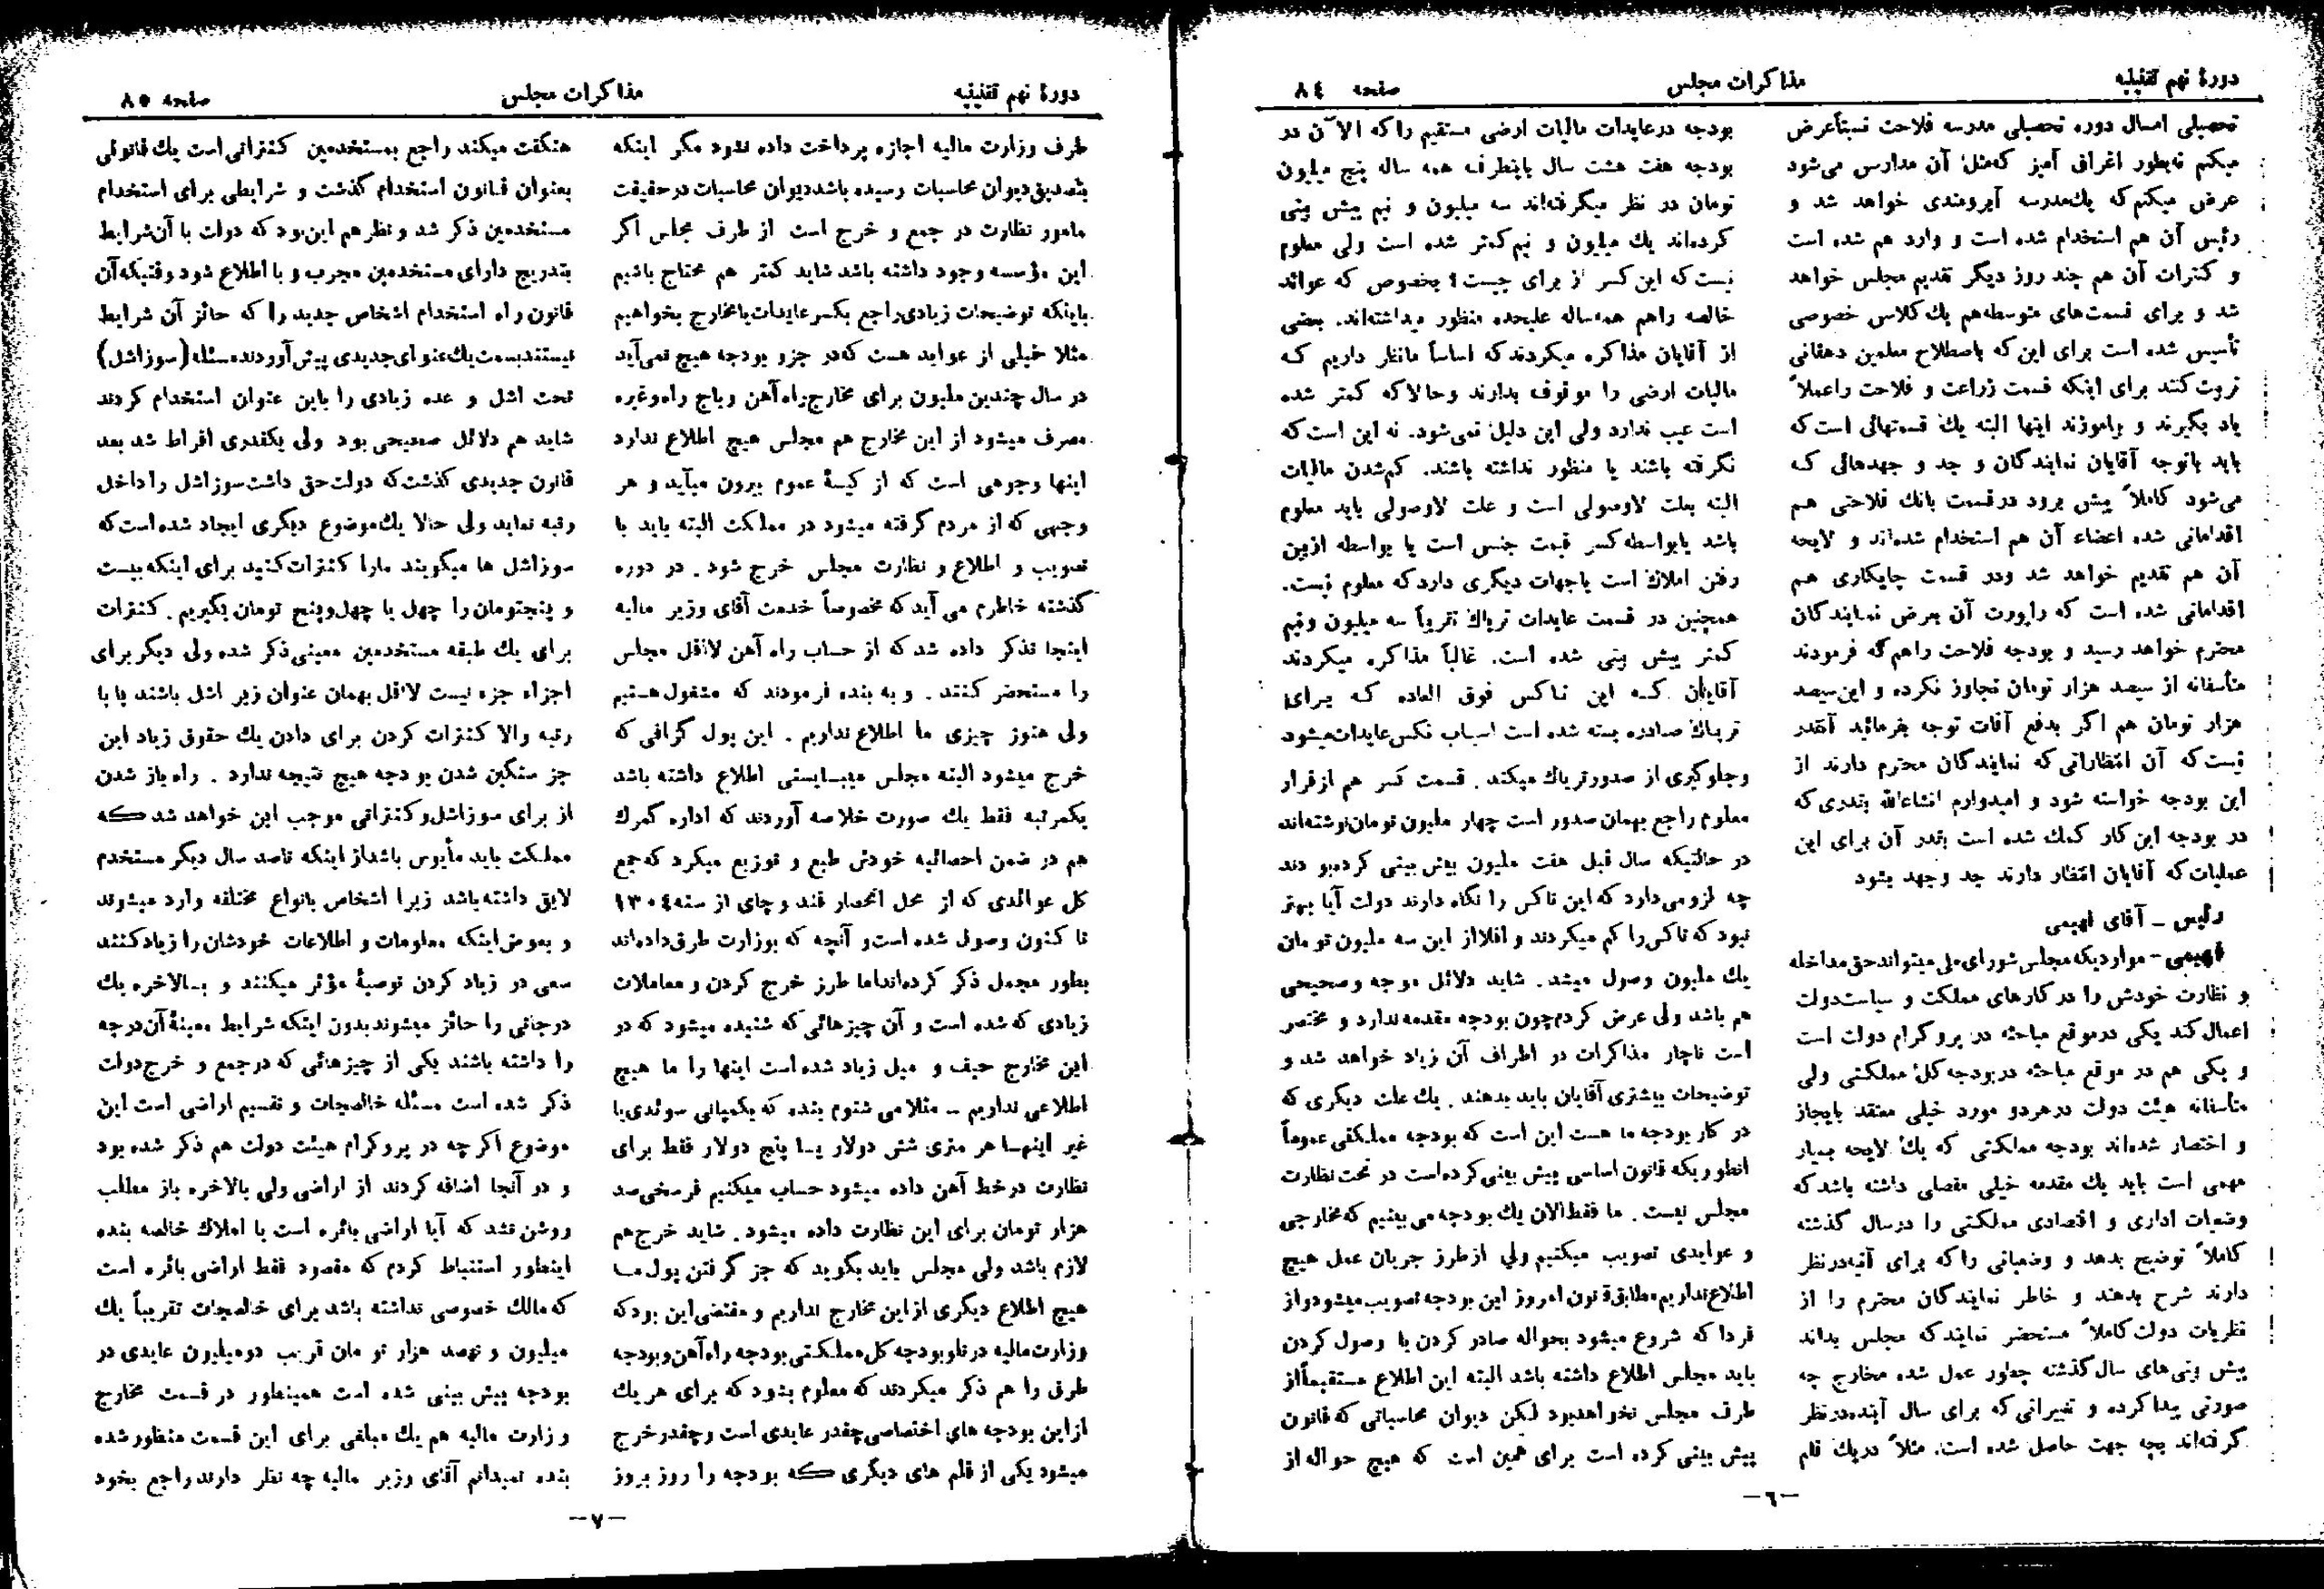 دورهٔ نهم تقنینیه
مذاکرات مجلس
صفحه ۸٤
تحصیلی امسال دوره تحصیلی مدرسه فلاحت نسبتاً عرض
میکنم نه بطور اغراق آمیز که مثل آن مدارس می‌شود
عرض میکنم که یك مدرسه آبرومندی خواهد شد و
رئیس آن هم استخدام شده است و وارد هم شده است
و کنترات آن هم چند روز دیگر تقدیم مجلس خواهد
شد و برای قسمت‌های متوسطه هم یك کلاس خصوصی
تأسیس شده است برای این که باصطلاح معلمین دهقانی
تربیت کنند برای اینکه قسمت زراعت و فلاحت را عملاً
یاد بگیرند و بیاموزند اینها البته یك قسمتهائی است که
باید باتوجه آقایان نمایندگان و جد و جهدهائی که
می‌شود کاملاً پیش برود در قسمت بانك فلاحتی هم
اقداماتی شده اعضاء آن هم استخدام شده‌اند و لایحه
آن هم تقدیم خواهد شد و در قسمت چایکاری هم
اقداماتی شده است که راپورت آن بعرض نمایندگان
محترم خواهد رسید و بودجه فلاحت را هم که فرمودند
متأسفانه از سیصد هزار تومان تجاوز نکرده و این سیصد
هزار تومان هم اگر بدفع آفات توجه بفرمائید آنقدر
نیست که آن انتظاراتی که نمایندگان محترم دارند از
این بودجه خواسته شود و امیدوارم انشاءالله بقدری که
در بودجه این کار کمك شده است بقدر آن برای این
عملیات که آقایان انتظار دارند جد و جهد بشود
رئیس ـ آقای فهیمی
فهیمی - مواردیکه مجلس شورای ملی میتواند حق مداخله
و نظارت خودش را در کارهای مملکت و سیاست دولت
اعمال کند یکی در موقع مباحثه در پروگرام دولت است
و یکی هم در موقع مباحثه در بودجه کل مملکتی ولی
متأسفانه هیئت دولت در هر دو مورد خیلی معتقد بایجاز
و اختصار شده‌اند بودجه مملکتی که یك لایحه بسیار
مهمی است باید یك مقدمه خیلی مفصلی داشته باشد که
وضعیات اداری و اقتصادی مملکتی را در سال گذشته
کاملاً توضیح بدهد و وضعیاتی را که برای آتیه در نظر
دارند شرح بدهند و خاطر نمایندگان محترم را از
نظریات دولت کاملاً مستحضر نمایند که مجلس بداند
پیش بینی‌های سال گذشته چطور عمل شده مخارج چه
صورتی پیدا کرده و تغییراتی که برای سال آینده در نظر
گرفته‌اند بچه جهت حاصل شده است. مثلاً در یك قلم
بودجه در عایدات مالیات ارضی مستقیم را که الآن در
بودجه هفت هشت سال باینطرف همه ساله پنج میلیون
تومان در نظر میگرفته‌اند سه میلیون و نیم پیش بینی
کرده‌اند یك میلیون و نیم کمتر شده است ولی معلوم
نیست که این کسر از برای چیست؟ بخصوص که عوائد
خالصه را هم همه ساله علیحده منظور میداشته‌اند. بعضی
از آقایان مذاکره میکردند که اساساً ما نظر داریم که
مالیات ارضی را موقوف بدارند و حالا که کمتر شده
است عیب ندارد ولی این دلیل نمی‌شود. نه این است که
نگرفته باشند یا منظور نداشته باشند. کم‌شدن مالیات
البته بعلت لاوصولی است و علت لاوصولی باید معلوم
باشد یا بواسطه کسر قیمت جنس است یا بواسطه از بین
رفتن املاك است یا جهات دیگری دارد که معلوم نیست.
همچنین در قسمت عایدات تریاك تقریباً سه میلیون و نیم
کمتر پیش بینی شده است. غالباً مذاکره میکردند
آقایان که این تاکس فوق العاده که برای
تریاك صادره بسته شده است اسباب نکس عایدات میشود
و جلوگیری از صدور تریاك میکند. قسمت کسر هم از قرار
معلوم راجع بهمان صدور است چهار ملیون تومان نوشته‌اند
در حالتیکه سال قبل هفت ملیون پیش بینی کرده بودند
چه لزومی دارد که این تاکس را نگاه دارند دولت آیا بهتر
نبود که تاکس را کم میکردند و اقلا از این سه ملیون تومان
یك ملیون وصول میشد. شاید دلائل موجه و صحیحی
هم باشد ولی عرض کردم چون بودجه مقدمه ندارد و مختصر
است ناچار مذاکرات در اطراف آن زیاد خواهد شد و
توضیحات بیشتری آقایان باید بدهند. یك علت دیگری که
در کار بودجه ما هست این است که بودجه مملکتی عموماً
انطوریکه قانون اساسی پیش بینی کرده است در تحت نظارت
مجلس نیست. ما فقط الان یك بودجه می بینیم که مخارجی
و عوایدی تصویب میکنیم ولی از طرز جریان عمل هیچ
اطلاع نداریم مطابق قانون امروز این بودجه تصویب میشود و از
فردا که شروع میشود بحواله صادر کردن یا وصول کردن
باید مجلس اطلاع داشته باشد البته این اطلاع مستقیماً از
طرف مجلس نخواهد بود لکن دیوان محاسباتی که قانون
پیش بینی کرده است برای همین است که هیچ حواله از
ـ٦ـ
دورهٔ نهم تقنینیه
مذاکرات مجلس
صفحه ۸۵
طرف وزارت مالیه اجازه پرداخت داده نشود مگر اینکه
بتصدیق دیوان محاسبات رسیده باشد دیوان محاسبات در حقیقت
مامور نظارت در جمع و خرج است از طرف مجلس اگر
این مؤسسه وجود داشته باشد شاید کمتر هم محتاج باشیم
باینکه توضیحات زیادی راجع بکسر عایدات یا مخارج بخواهیم
مثلا خیلی از عواید هست که در جزو بودجه هیچ نمی‌آید
در سال چندین ملیون برای مخارج راه آهن و باج راه و غیره
مصرف میشود از این مخارج هم مجلس هیچ اطلاع ندارد
اینها وجوهی است که از کیسهٔ عموم بیرون میآید و هر
وجهی که از مردم گرفته میشود در مملکت البته باید با
تصویب و اطلاع و نظارت مجلس خرج شود. در دوره
گذشته خاطرم می آید که مخصوصاً خدمت آقای وزیر مالیه
اینجا تذکر داده شد که از حساب راه آهن لااقل مجلس
را مستحضر کنند. و به بنده فرمودند که مشغول هستیم
ولی هنوز چیزی ما اطلاع نداریم. این پول گزافی که
خرج میشود البته مجلس میبایستی اطلاع داشته باشد
یکمرتبه فقط یك صورت خلاصه آوردند که اداره گمرك
هم در ضمن احصائیه خودش طبع و توزیع میکرد که جمع
کل عوائدی که از محل انحصار قند و چای از سنه ۱۳۰٤
تا کنون وصول شده است و آنچه که بوزارت طرق داده‌اند
بطور مجمل ذکر کرده‌اند اما طرز خرج کردن و معاملات
زیادی که شده است و آن چیزهائی که شنیده میشود که در
این مخارج حیف و میل زیاد شده است اینها را ما هیچ
اطلاعی نداریم ـ مثلا می شنوم بنده که بکمپانی سوئدی یا
غیر اینها هر متری شش دولار یا پنج دولار فقط برای
نظارت در خط آهن داده میشود حساب میکنیم فرسخی صد
هزار تومان برای این نظارت داده میشود. شاید خرج هم
لازم باشد ولی مجلس باید بگوید که جز گرفتن پول ما
هیچ اطلاع دیگری از این مخارج نداریم و مقتضی این بود که
وزارت مالیه در تلو بودجه کل مملکتی بودجه راه آهن و بودجه
طرق را هم ذکر میکردند که معلوم بشود که برای هر یك
از این بودجه های اختصاصی چقدر عایدی است و چقدر خرج
میشود یکی از قلم های دیگری که بودجه را روز بروز
هنگفت میکند راجع بمستخدمین کنتراتی است یك قانونی
بعنوان قانون استخدام گذشت و شرایطی برای استخدام
مستخدمین ذکر شد و نظر هم این بود که دولت با آن شرایط
بتدریج دارای مستخدمین مجرب و با اطلاع شود وقتیکه آن
قانون راه استخدام اشخاص جدید را که حائز آن شرایط
نیستند بست یك عنوان جدیدی پیش آوردند مسئله (سوزاشل)
تحت اشل و عده زیادی را باین عنوان استخدام کردند
شاید هم دلائل صحیحی بود ولی یکقدری افراط شد بعد
قانون جدیدی گذشت که دولت حق داشت سوزاشل را داخل
رتبه نماید ولی حالا یك موضوع دیگری ایجاد شده است که
سوزاشل ها میگویند مارا کنترات کنید برای اینکه بیست
و پنجتومان را چهل یا چهل و پنج تومان بگیریم. کنترات
برای یك طبقه مستخدمین معینی ذکر شده ولی دیگر برای
اجزاء جزء نیست لااقل بهمان عنوان زیر اشل باشند یا با
رتبه والا کنترات کردن برای دادن یك حقوق زیاد این
جز سنگین شدن بودجه هیچ نتیجه ندارد. راه باز شدن
از برای سوزاشل و کنتراتی موجب این خواهد شد که
مملکت باید مأیوس باشد از اینکه تا صد سال دیگر مستخدم
لایق داشته باشد زیرا اشخاص بانواع مختلفه وارد میشوند
و بعوض اینکه معلومات و اطلاعات خودشان را زیاد کنند
سعی در زیاد کردن توصیهٔ مؤثر میکنند و بالاخره یك
درجاتی را حائز میشوند بدون اینکه شرایط معینهٔ آن درجه
را داشته باشند یکی از چیزهائی که در جمع و خرج دولت
ذکر شده است مسئله خالصجات و تقسیم اراضی است این
موضوع اگر چه در پروگرام هیئت دولت هم ذکر شده بود
و در آنجا اضافه کردند از اراضی ولی بالاخره باز مطلب
روشن نشد که آیا اراضی بائره است یا املاك خالصه بنده
اینطور استنباط کردم که مقصود فقط اراضی بائره است
که مالك خصوصی نداشته باشد برای خالصجات تقریباً یك
میلیون و نهصد هزار تومان قریب دو میلیون عایدی در
بودجه پیش بینی شده است همینطور در قسمت مخارج
وزارت مالیه هم یك مبلغی برای این قسمت منظور شده
بنده نمیدانم آقای وزیر مالیه چه نظر دارند راجع بخود
ـ۷ـ